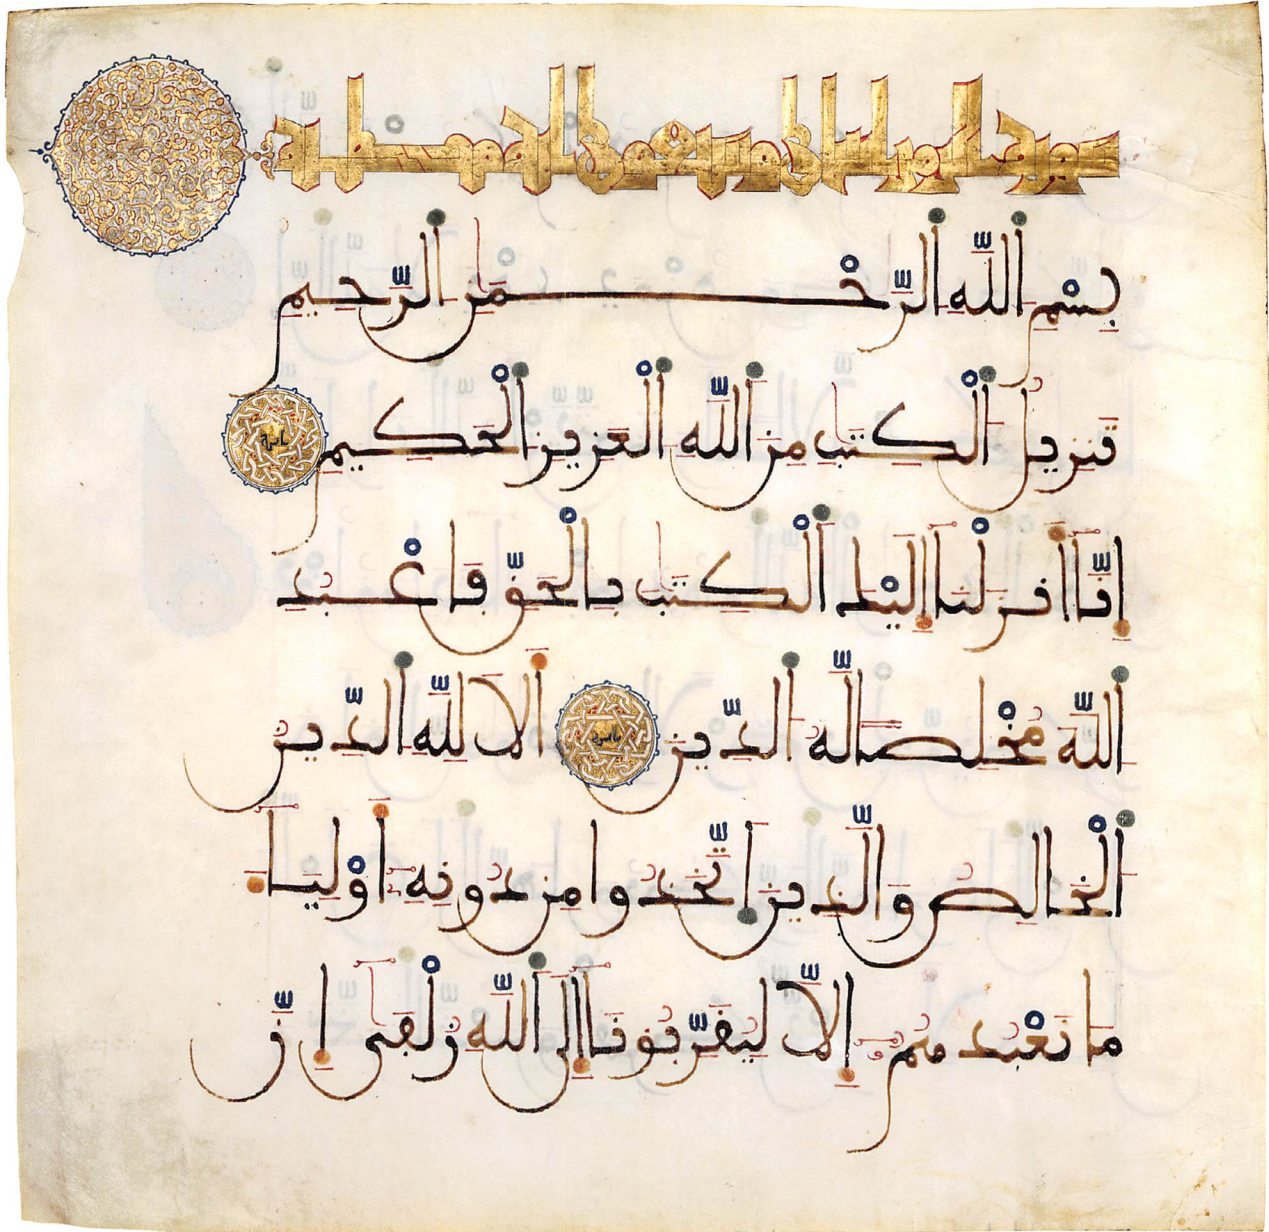 سورة
بِسْمِ اللَّهِ الرَّحْمَٰنِ الرَّحِيمِ
تَنزِيلُ الْكِتَٰبِ مِنَ اللَّهِ الْعَزِيزِ الْحَكِيمِ
إِنَّا أَنزَلْنَا إِلَيْكَ الْكِتَٰبَ بِالْحَقِّ فَاعْبُدِ
اللَّهَ مُخْلِصًا لَّهُ الدِّينَ أَلَا لِلَّهِ الدِّينُ
الْخَالِصُ وَالَّذِينَ اتَّخَذُوا مِن دُونِهِ أَوْلِيَاءَ
مَا نَعْبُدُهُمُ إِلَّا لِيُقَرِّبُونَا إِلَى اللَّهِ زُلْفَىٰ إِنَّ